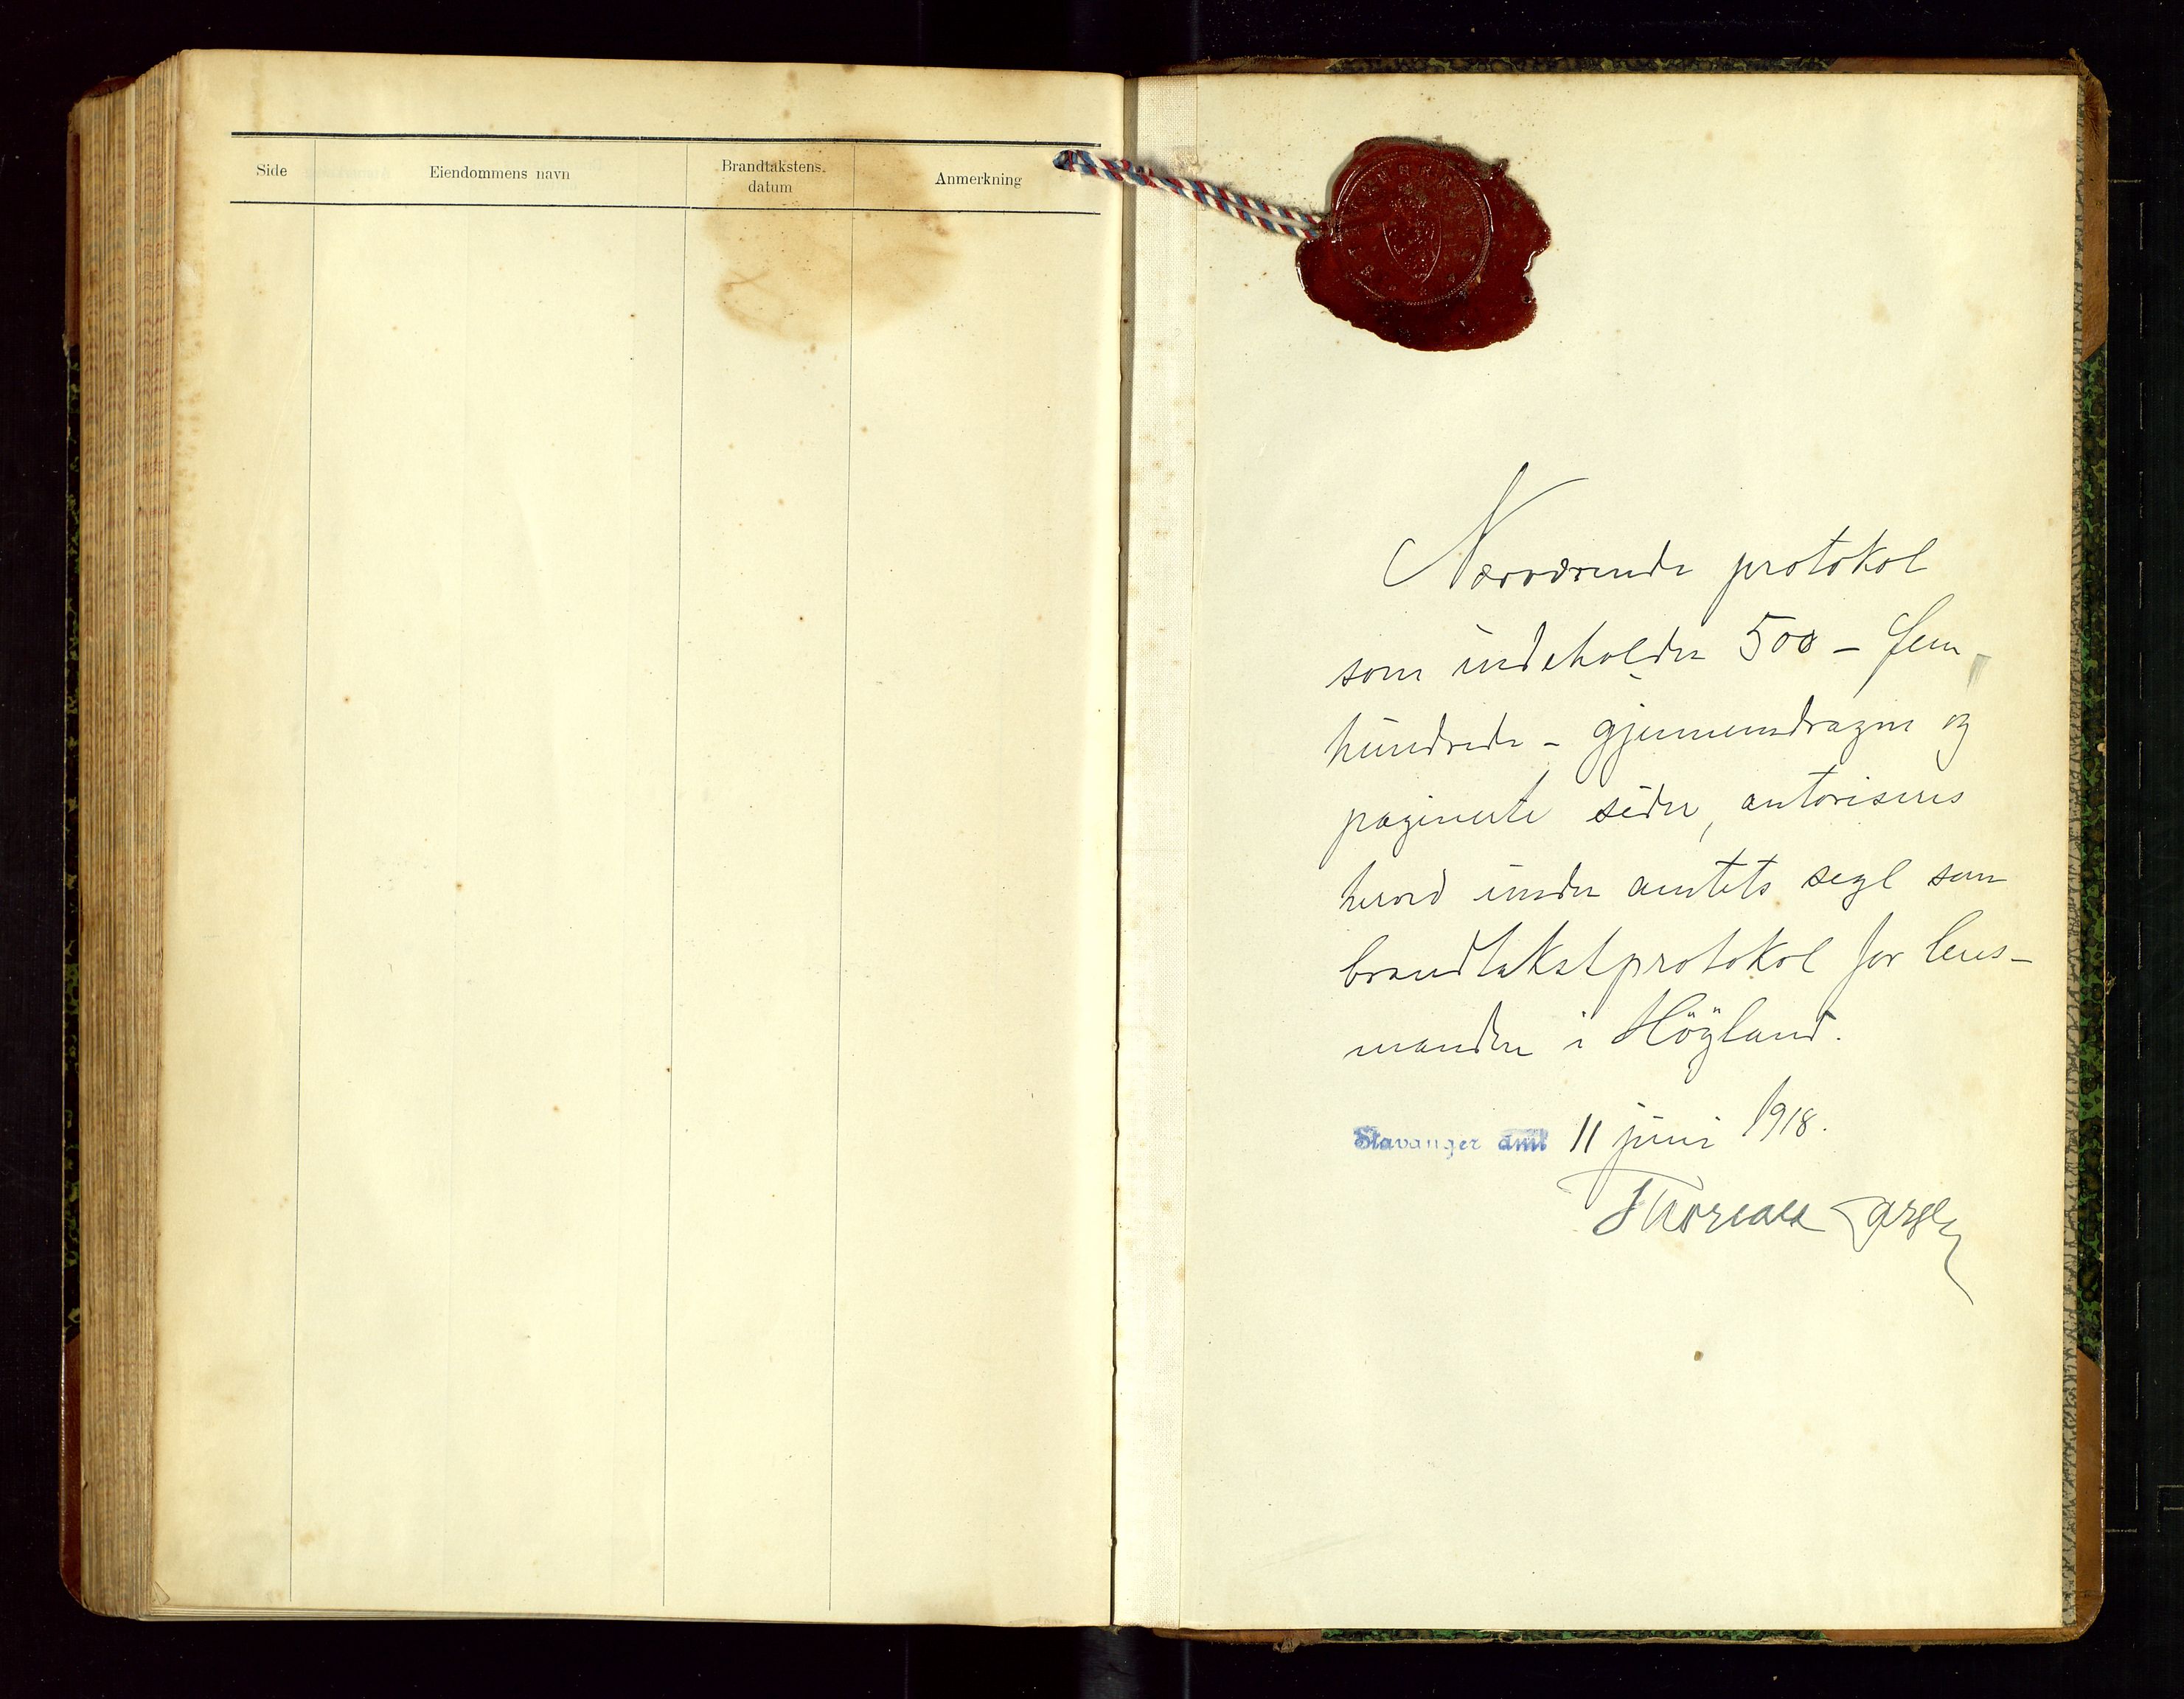 Side
Eiendommens navn
Brandtakstens
datum
Anmerkning
Nærværende protokol
som indeholder 500 - fem
hundrede - gjennemdragne og
paginerte sider, autoriseres
herved under amtets segl som
brandtakstprotokol for lens-
manden i Höyland.
Stavanger amt 11 juni 1918.